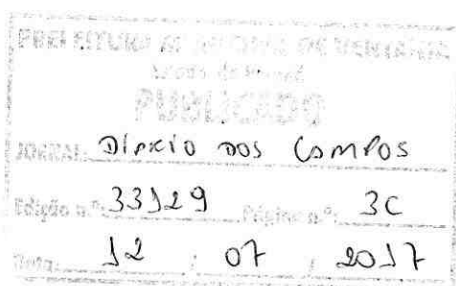 PREFEITURA MUNICIPAL DE VENTANIA
PUBLICADO
JORNAL: DIÁRIO DOS CAMPOS
Edição n.º: 33129 Página n.º: 3C
Data: 12 / 07 / 2017